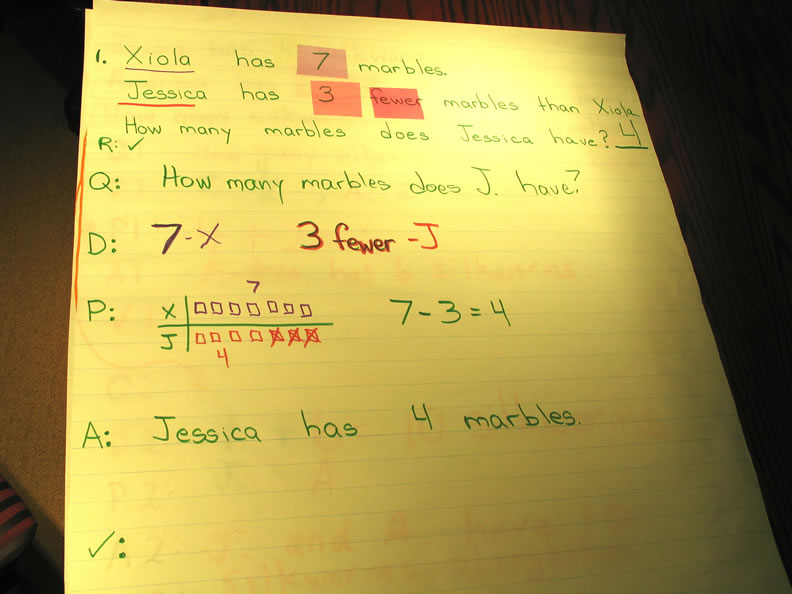 1. Xiola has 7 marbles.
Jessica has 3 fewer marbles than Xiola
How many marbles does Jessica have? 4
R: ✓
Q: How many marbles does J. have?
D: 7-X 3 fewer -J
7
P: X 7 - 3 = 4
J
4
A: Jessica has 4 marbles.
✓: